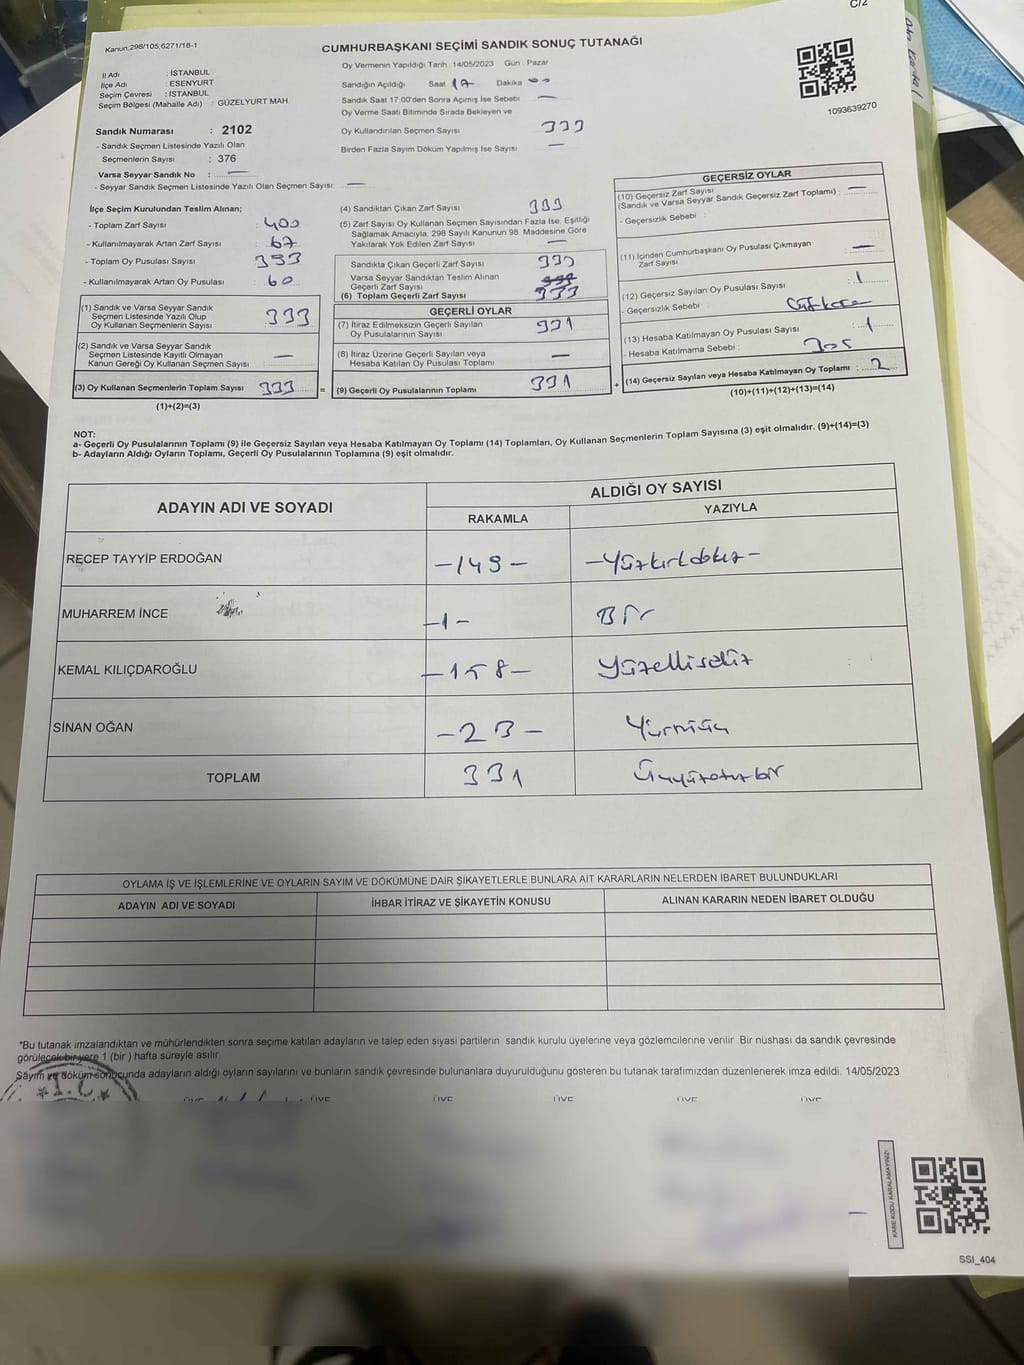 C/2
Kanun:298/105;6271/18-1
CUMHURBAŞKANI SEÇİMİ SANDIK SONUÇ TUTANAĞI
İl Adı : İSTANBUL
İlçe Adı : ESENYURT
Seçim Çevresi : İSTANBUL
Seçim Bölgesi (Mahalle Adı) : GÜZELYURT MAH.
Sandık Numarası : 2102
- Sandık Seçmen Listesinde Yazılı Olan
Seçmenlerin Sayısı : 376
Varsa Seyyar Sandık No : —
- Seyyar Sandık Seçmen Listesinde Yazılı Olan Seçmen Sayısı: —
Oy Vermenin Yapıldığı Tarih :14/05/2023 Gün : Pazar
Sandığın Açıldığı Saat 17 Dakika 00
Sandık Saat 17:00'den Sonra Açımış İse Sebebi —
Oy Verme Saati Bitiminde Sırada Bekleyen ve
Oy Kullandırılan Seçmen Sayısı 333
Birden Fazla Sayım Döküm Yapılmış İse Sayısı —
1093639270
İlçe Seçim Kurulundan Teslim Alınan;
- Toplam Zarf Sayısı : 400
- Kullanılmayarak Artan Zarf Sayısı : 67
- Toplam Oy Pusulası Sayısı : 393
- Kullanılmayarak Artan Oy Pusulası : 60
(1) Sandık ve Varsa Seyyar Sandık
Seçmen Listesinde Yazılı Olup
Oy Kullanan Seçmenlerin Sayısı : 333
(2) Sandık ve Varsa Seyyar Sandık
Seçmen Listesinde Kayıtlı Olmayan
Kanun Gereği Oy Kullanan Seçmen Sayısı —
(3) Oy Kullanan Seçmenlerin Toplam Sayısı 333 =
(1)+(2)=(3)
(4) Sandıktan Çıkan Zarf Sayısı 333
(5) Zarf Sayısı Oy Kullanan Seçmen Sayısından Fazla İse, Eşitliği
Sağlamak Amacıyla, 298 Sayılı Kanunun 98. Maddesine Göre
Yakılarak Yok Edilen Zarf Sayısı —
Sandıkta Çıkan Geçerli Zarf Sayısı 333
Varsa Seyyar Sandıktan Teslim Alınan
Geçerli Zarf Sayısı
(6) Toplam Geçerli Zarf Sayısı 333
GEÇERLİ OYLAR
(7) İtiraz Edilmeksizin Geçerli Sayılan
Oy Pusulalarının Sayısı 331
(8) İtiraz Üzerine Geçerli Sayılan veya
Hesaba Katılan Oy Pusulası Toplamı —
(9) Geçerli Oy Pusulalarının Toplamı 331 +
GEÇERSİZ OYLAR
(10) Geçersiz Zarf Sayısı
(Sandık ve Varsa Seyyar Sandık Geçersiz Zarf Toplamı) : —
- Geçersizlik Sebebi :
(11) İçinden Cumhurbaşkanı Oy Pusulası Çıkmayan
Zarf Sayısı —
(12) Geçersiz Sayılan Oy Pusulası Sayısı : 1
- Geçersizlik Sebebi :
(13) Hesaba Katılmayan Oy Pusulası Sayısı : 1
- Hesaba Katılmama Sebebi :
(14) Geçersiz Sayılan veya Hesaba Katılmayan Oy Toplamı : 2
(10)+(11)+(12)+(13)=(14)
NOT:
a- Geçerli Oy Pusulalarının Toplamı (9) ile Geçersiz Sayılan veya Hesaba Katılmayan Oy Toplamı (14) Toplamları, Oy Kullanan Seçmenlerin Toplam Sayısına (3) eşit olmalıdır. (9)+(14)=(3)
b- Adayların Aldığı Oyların Toplamı, Geçerli Oy Pusulalarının Toplamına (9) eşit olmalıdır.
ADAYIN ADI VE SOYADI
ALDIĞI OY SAYISI
RAKAMLA YAZIYLA
RECEP TAYYİP ERDOĞAN -149- -Yüzkırkdokuz-
MUHARREM İNCE -1- Bir
KEMAL KILIÇDAROĞLU -158- Yüzellisekiz
SİNAN OĞAN -23- Yirmiüç
TOPLAM 331 Üçyüzotuzbir
OYLAMA İŞ VE İŞLEMLERİNE VE OYLARIN SAYIM VE DÖKÜMÜNE DAİR ŞİKAYETLERLE BUNLARA AİT KARARLARIN NELERDEN İBARET BULUNDUKLARI
ADAYIN ADI VE SOYADI İHBAR İTİRAZ VE ŞİKAYETİN KONUSU ALINAN KARARIN NEDEN İBARET OLDUĞU
*Bu tutanak imzalandıktan ve mühürlendikten sonra seçime katılan adayların ve talep eden siyasi partilerin sandık kurulu üyelerine veya gözlemcilerine verilir. Bir nüshası da sandık çevresinde
görülecek bir yere 1 (bir ) hafta süreyle asılır.
Sayım ve döküm sonucunda adayların aldığı oyların sayılarını ve bunların sandık çevresinde bulunanlara duyurulduğunu gösteren bu tutanak tarafımızdan düzenlenerek imza edildi. 14/05/2023
T.C.
ÜYE ÜYE ÜYE ÜYE ÜYE ÜYE
KARE KODU KARALAMAYINIZ!
SSI_404